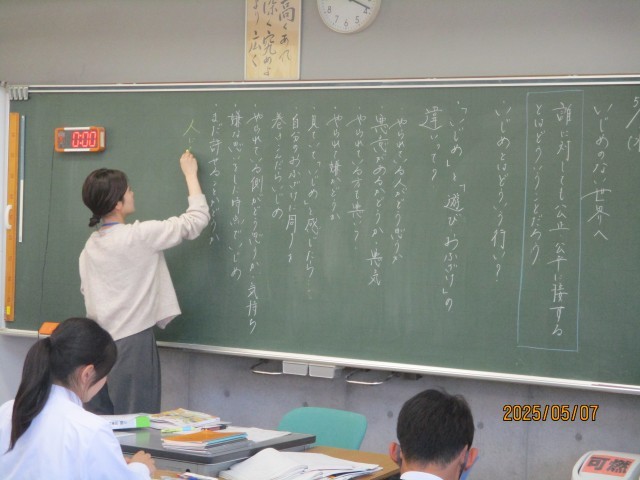 高くあれ
深く究めよ
より広く
いじめのない世界へ
誰に対しても公正、公平に接する
とはどういうことだろう
いじめとはどういう行い?
「いじめ」と「遊び・おふざけ」の
違いって?
・やられている人がどう思うか
・悪意があるかどうか・悪気
・やられて嫌かどうか
・見ていて「いじめ」と感じたら…
・自分のおふざけに周りを
巻きこんだらいじめ
・やられている側がどう思うか、気持ち
・嫌な思いをした時点でいじめ
・まだ許せることかどうか
人
0:00
2025/05/07
可燃